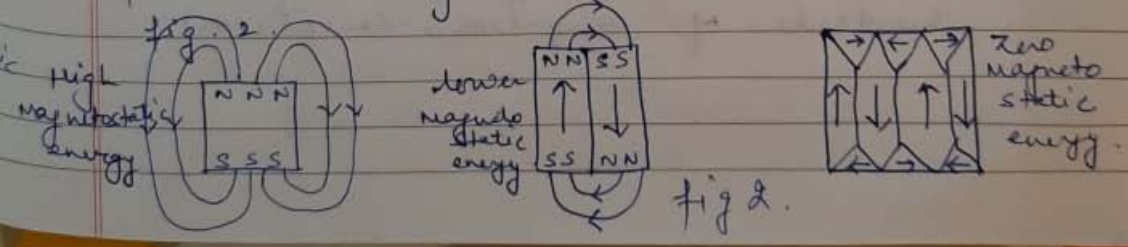 fig. 2.
High
magnetostatic
energy
N N N
S S S
lower
magneto
static
energy
N N S S
S S N N
fig 2.
Zero
magneto
static
energy.